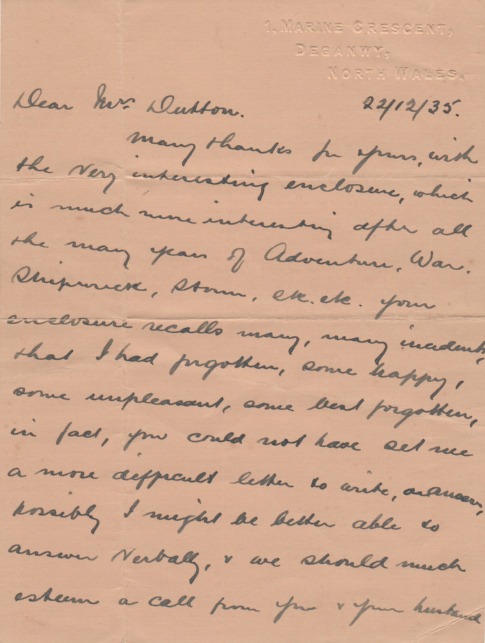 1, MARINE CRESCENT,
DEGANWY,
NORTH WALES.
Dear Mrs Dutton. 22/12/35.
Many thanks for yours, with
the very interesting enclosure, which
is much more interesting after all
the many years of Adventure, War.
Shipwreck, Storm, etc. etc. your
enclosure recalls many, many incidents,
that I had forgotten, some happy,
some unpleasant, some best forgotten,
in fact, you could not have set me
a more difficult letter to write, or answer,
possibly I might be better able to
answer Verbally, & we should much
esteem a call from you & your husband